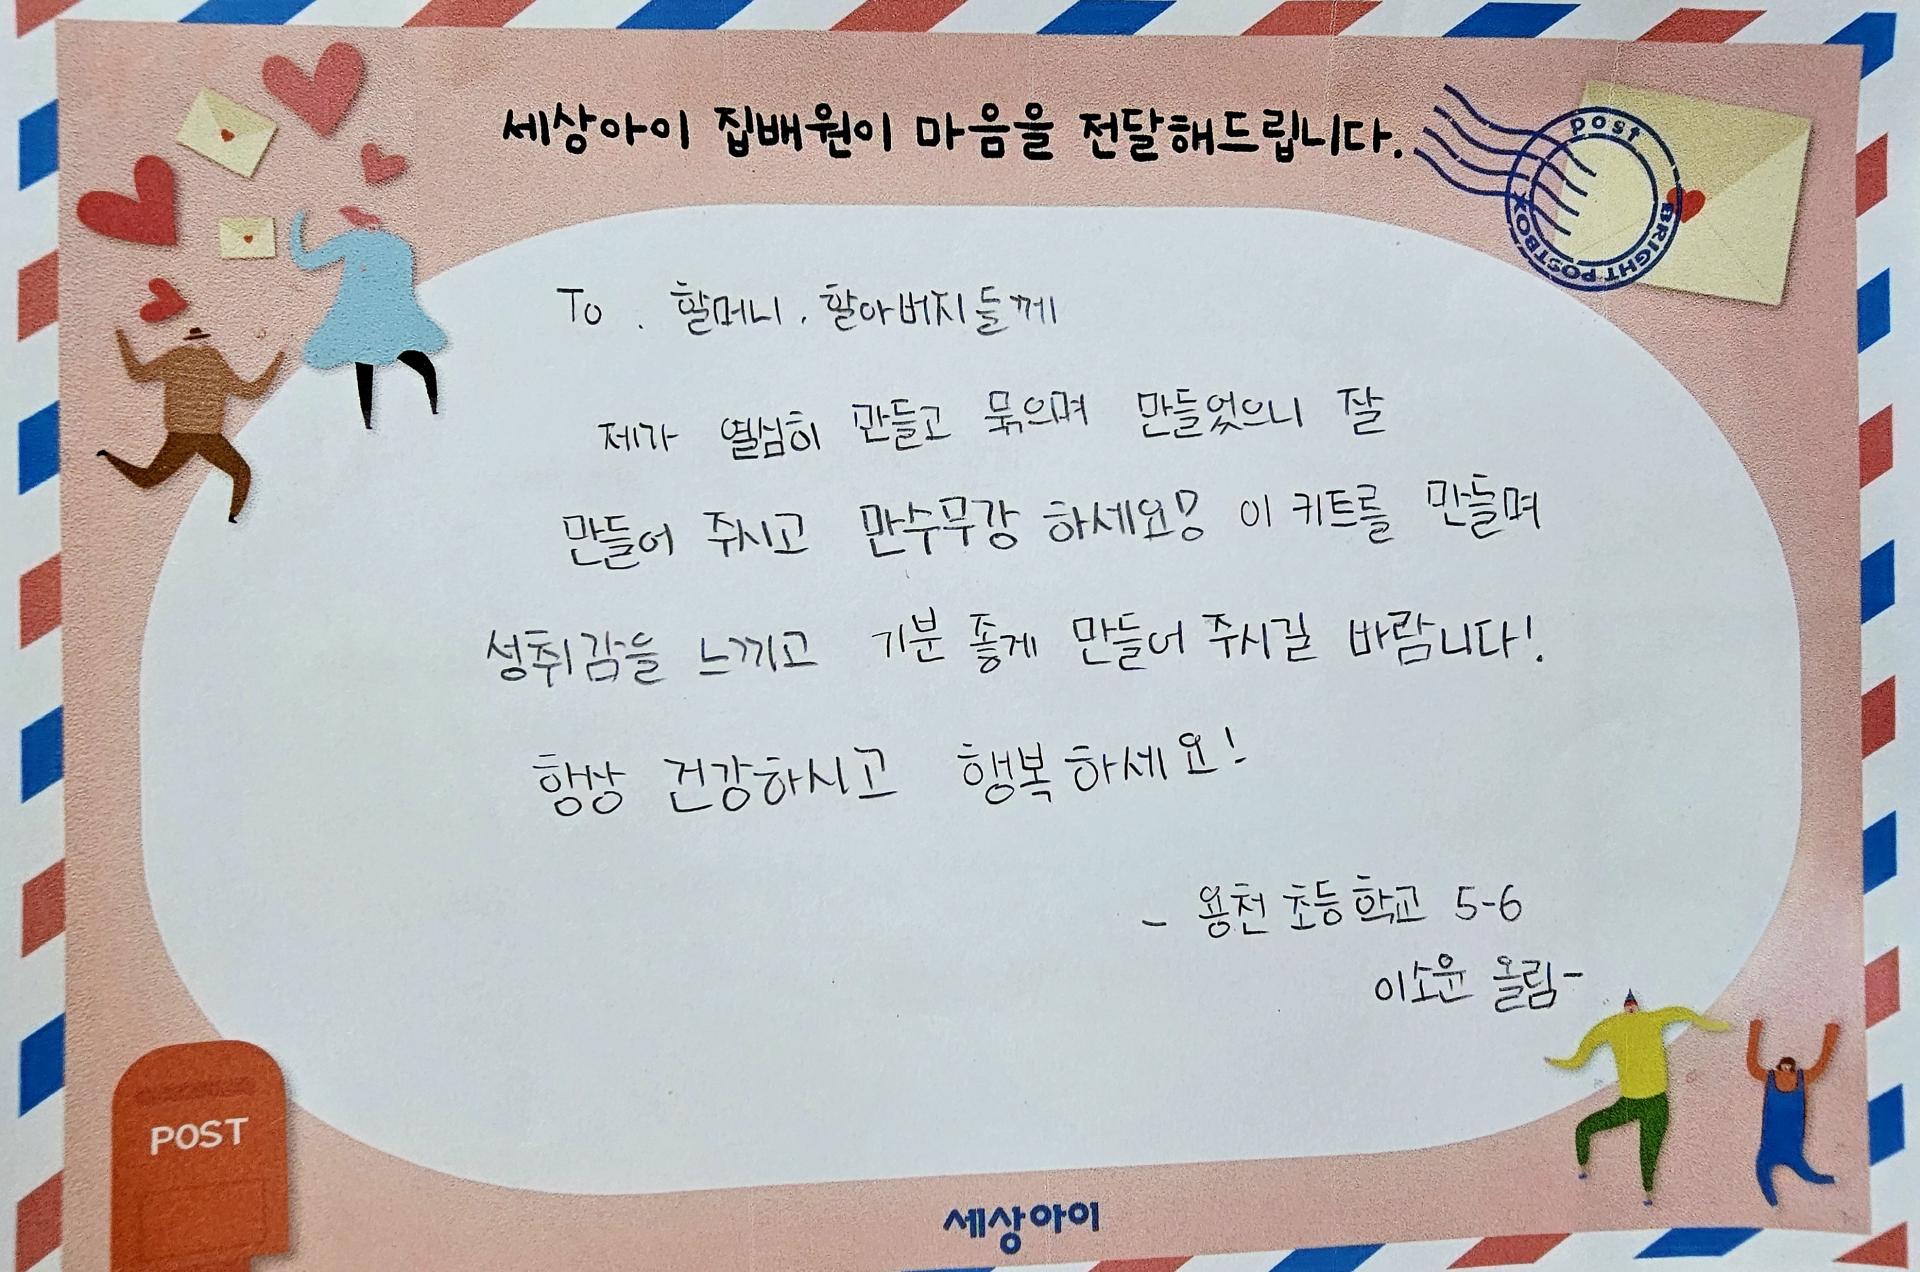 세상아이 집배원이 마음을 전달해드립니다.
post
BRIGHT POSTBOX
To. 할머니, 할아버지들께
제가 열심히 만들고 묶으며 만들었으니 잘
만들어 주시고 만수무강 하세요! 이 키트를 만들며
성취감을 느끼고 기분 좋게 만들어 주시길 바람니다!
항상 건강하시고 행복하세요!
- 용천초등학교 5-6
이소윤 올림-
POST
세상아이